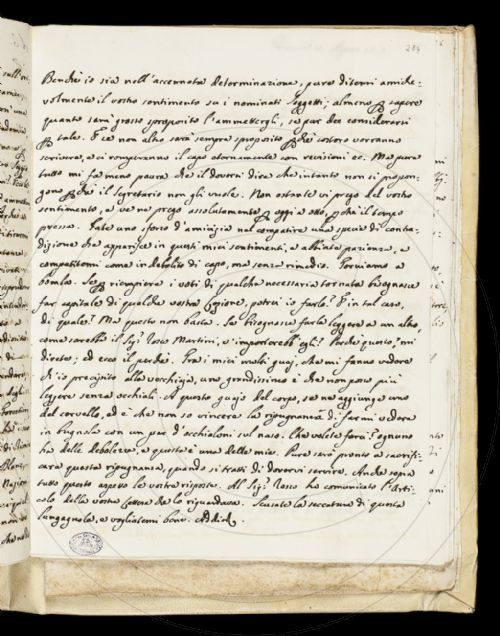 284
Benchè io sia nell'accennata determinazione, pure ditemi amiche-
volmente il vostro sentimento su i nominati soggetti; almeno per sapere
quanto sarà grosso sproposito l'ammettergli, se pur dee considerarsi
per tale. E se non altro sarà sempre sproposito perchè costoro vorranno
scrivere, e ci romperanno il capo eternamente con revisioni ec. Ma pure
tutto mi fa meno paura che il dovervi dire che intanto non si propon-
gono perchè il segretario non gli vuole. Non ostante vi prego del vostro
sentimento, e ve ne prego assolutamente per oggi a otto, perchè il tempo
pressa. Fate uno sforzo d'amicizia nel compatire una specie di contra-
dizione che apparisce in questi miei sentimenti, e abbiate pazienza, e
compatitemi come indebolito di capo, ma senza rimedio. Torniamo a
bomba. Se per riempiere i voti di qualche necessaria tornata bisognasse
far capitale di qualche vostra lezione, potrei io farlo? E in tal caso,
di quale? Ma questo non basta. Se bisognasse farla leggere a un altro,
come sarebbe il Sig. Rosso Martini, v'importerebb'egli? Perchè questo, mi
direte; ed ecco il perchè. Fra i miei molti guaj, che mi fanno vedere
ch'io precipito alla vecchiaja, uno grandissimo è che non posso più
leggere senza occhiali. A questo guajo del corpo, se ne aggiunge uno
del cervello, ed è che non so vincere la ripugnanza di farmi vedere
in bugnola con un par d'occhialoni sul naso. Che volete fare? ognuno
ha delle debolezze, e questa è una delle mie. Pure sarò pronto a sacrifi-
care questa ripugnanza, quando si tratti di dovervi servire. Anche sopra
tutto questo aspetto le vostre risposte. Al Sig. Rosso ho comunicato l'Arti-
colo della vostra lettera che lo riguardava. Scusate la seccatura di questa
lungagnola, e vogliatemi bene. Addio.